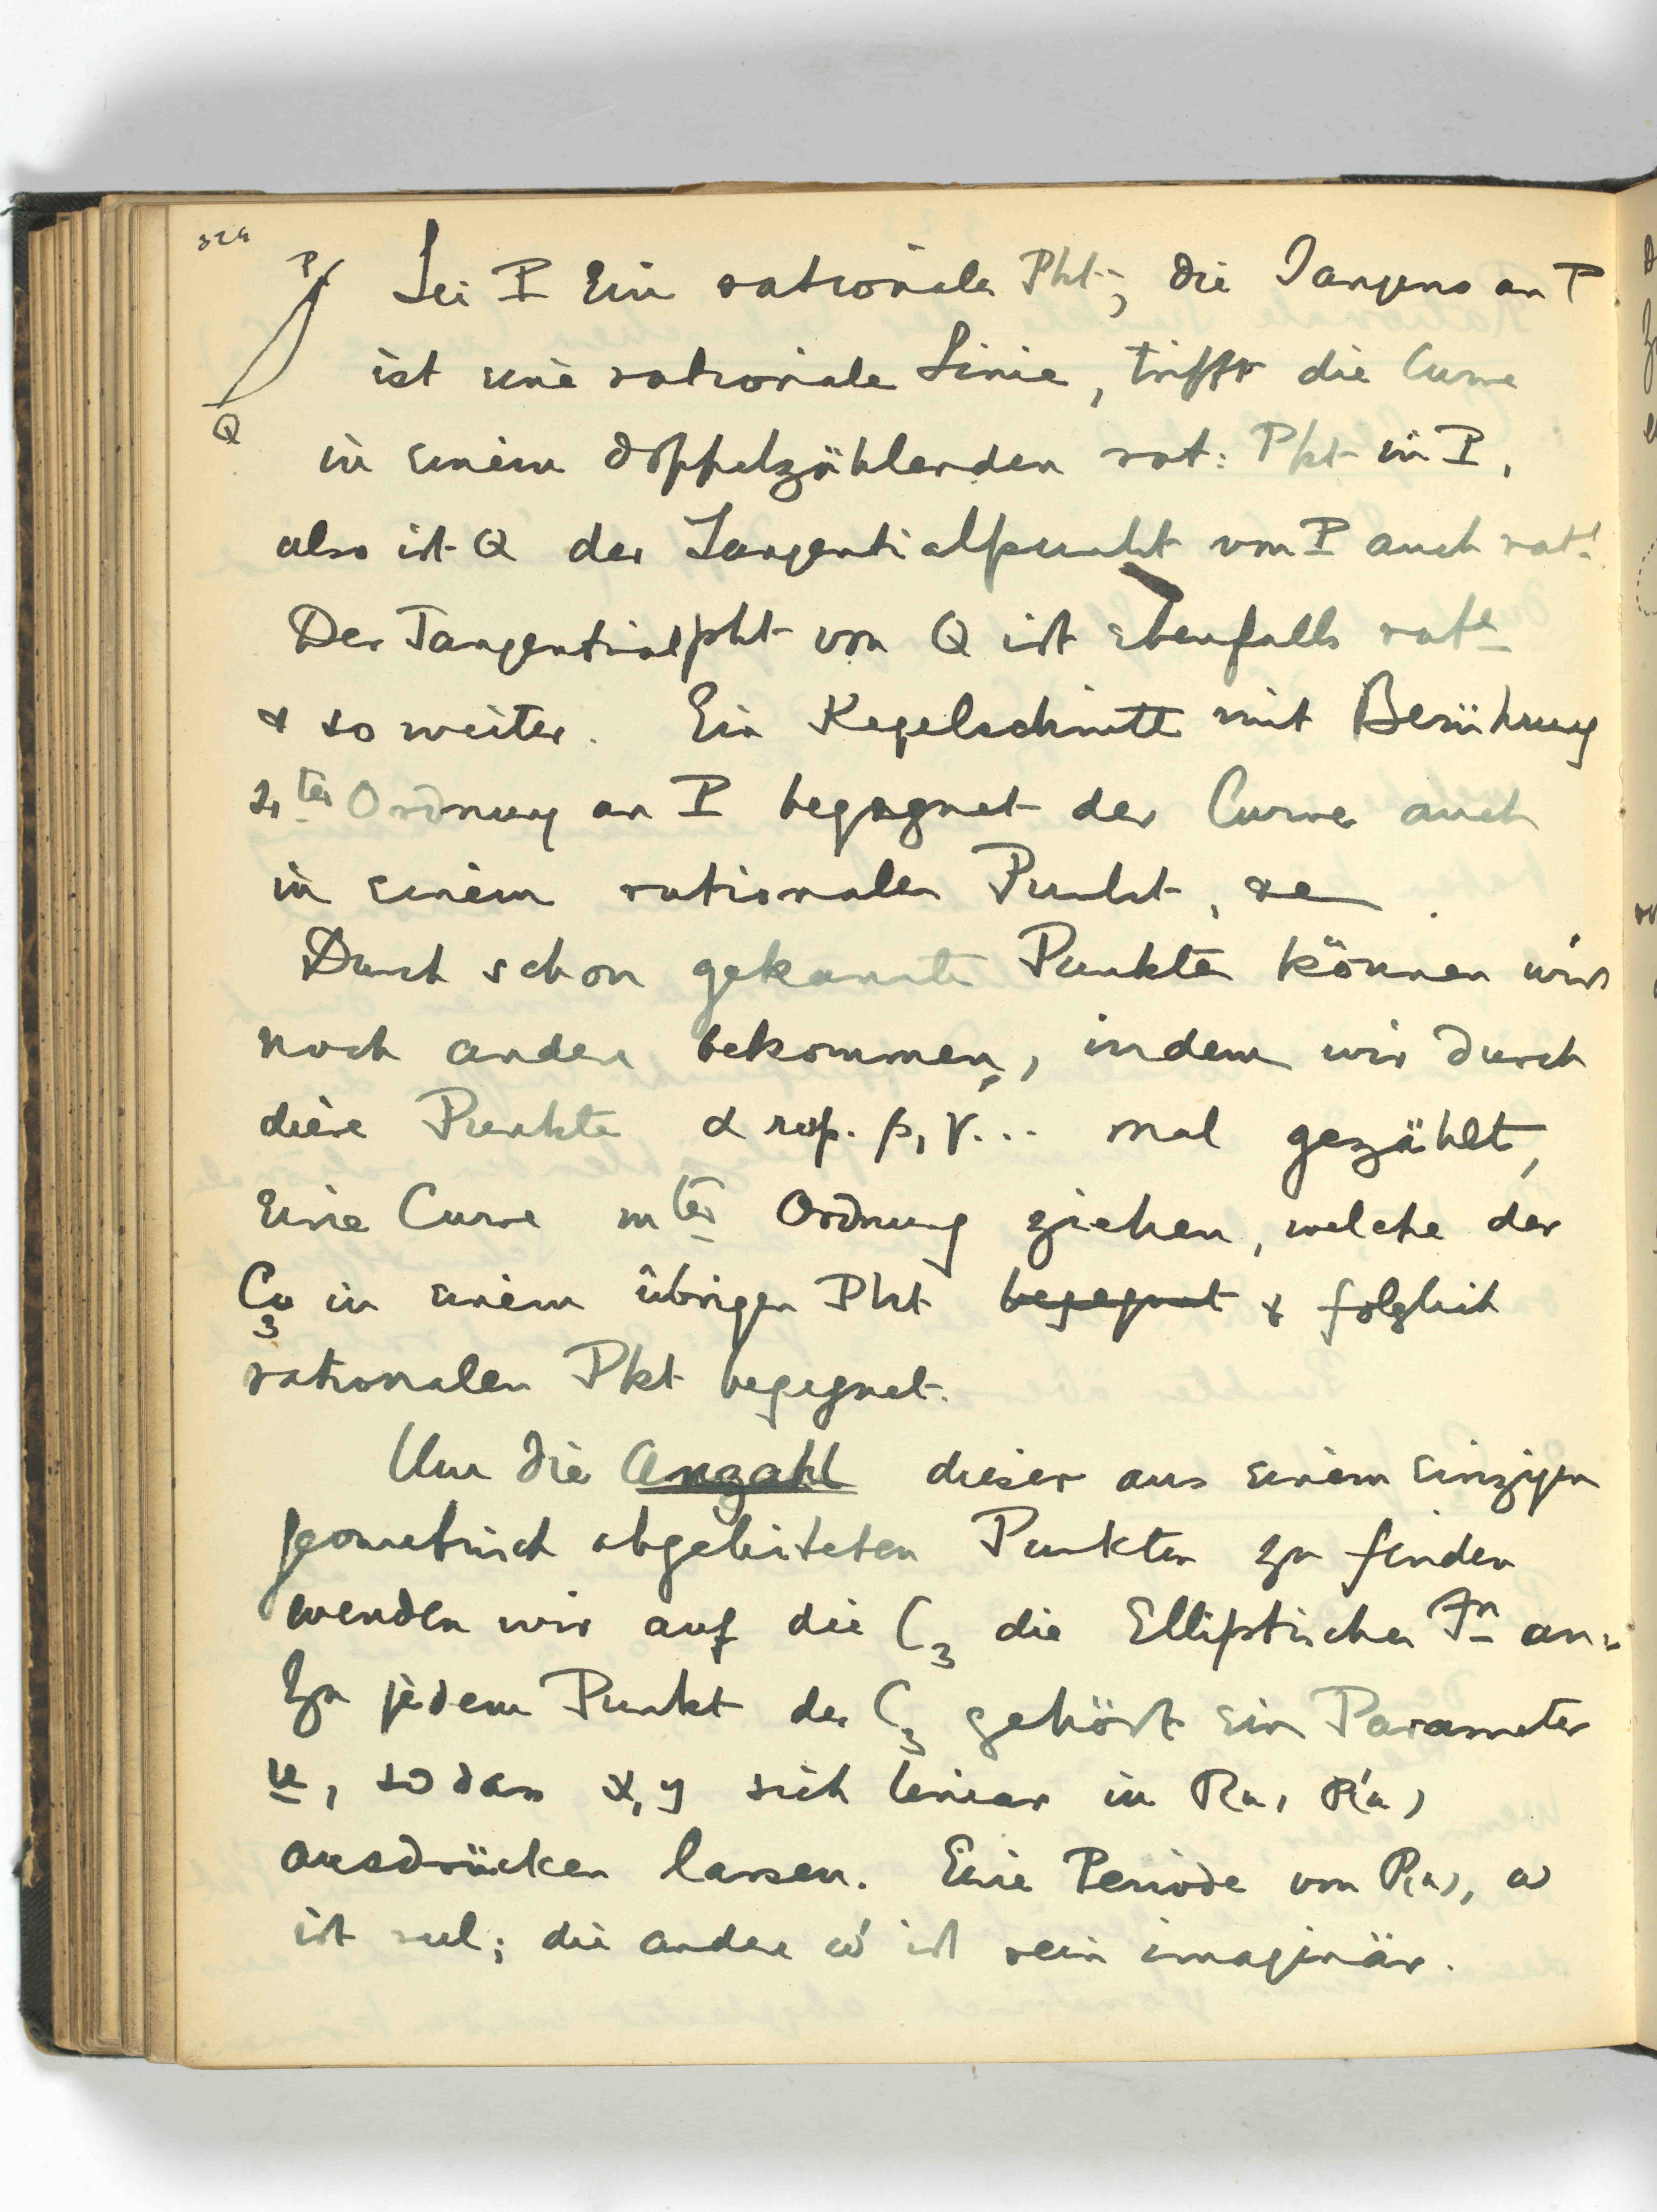 324
P
Sei P Ein rationaler Pkt; die Tangens an P
ist eine rationale Linie, trifft die Curve
Q
in einem doppelzählenden rat: Pkt in P,
also ist Q der Tangentialpunkt von P auch rat!
Der Tangentialpkt von Q ist ebenfalls rat
& so weiter. Ein Kegelschnitt mit Berührung
4ter Ordnung an P begegnet der Curve auch
in einem rationalen Punkt,
Durch schon gekannte Punkte können wir
noch andere bekommen, indem wir durch
diese Punkte α resp. β, γ... mal gezählt,
Eine Curve mter Ordnung ziehen, welche der
C3 in einem übrigen Pkt begegnet & folglich
rationalen Pkt begegnet.
Um die Anzahl dieser aus einem einzigen
geometrisch abgeleiteten Punkten zu finden
wenden wir auf die C3 die Elliptischen Fn an.
Zu jedem Punkt der C3 gehört ein Parameter
u, so dass x, y sich linear in Pu, P'u,
ausdrücken lassen. Eine Periode von P(u), ω
ist reel; die andere ω' ist rein imaginär.